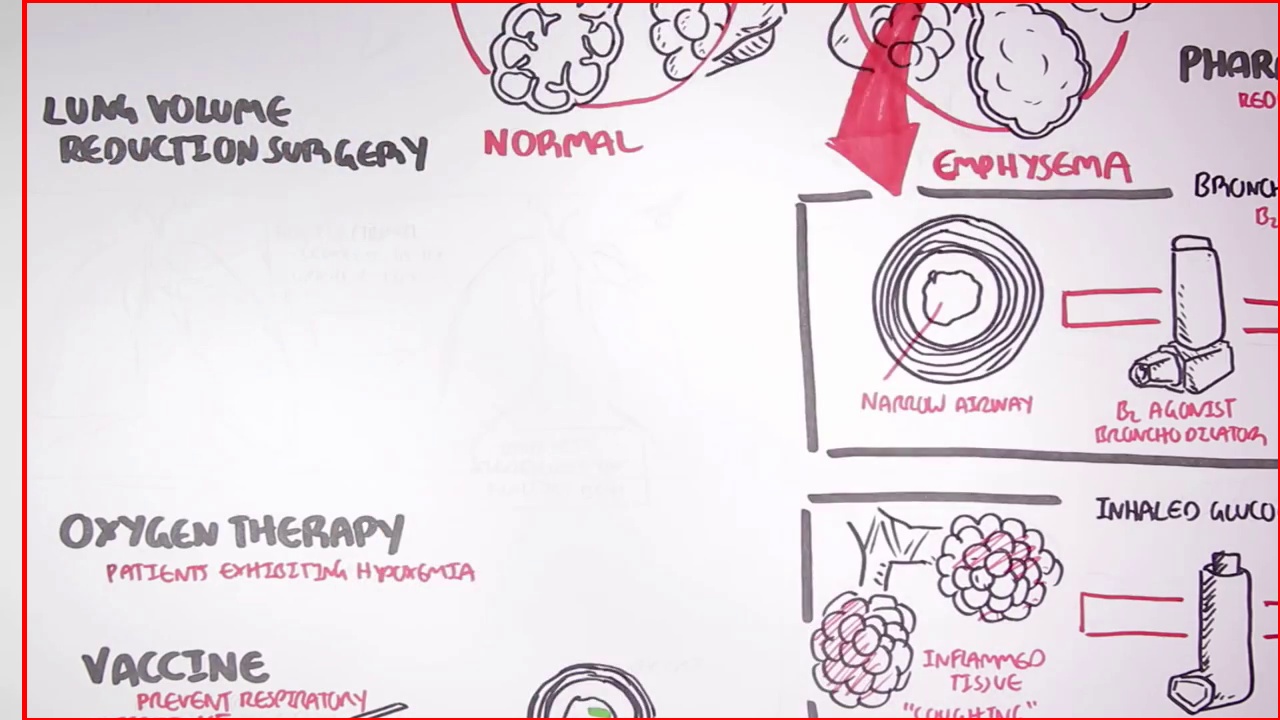 LUNG VOLUME
REDUCTION SURGERY
NORMAL
EMPHYSEMA
NARROW AIRWAY
B2 AGONIST
BRONCHODILATOR
OXYGEN THERAPY
PATIENTS EXHIBITING HYPOXEMIA
INHALED
INFLAMMED
TISSUE
"COUGHING"
VACCINE
PREVENT RESPIRATORY